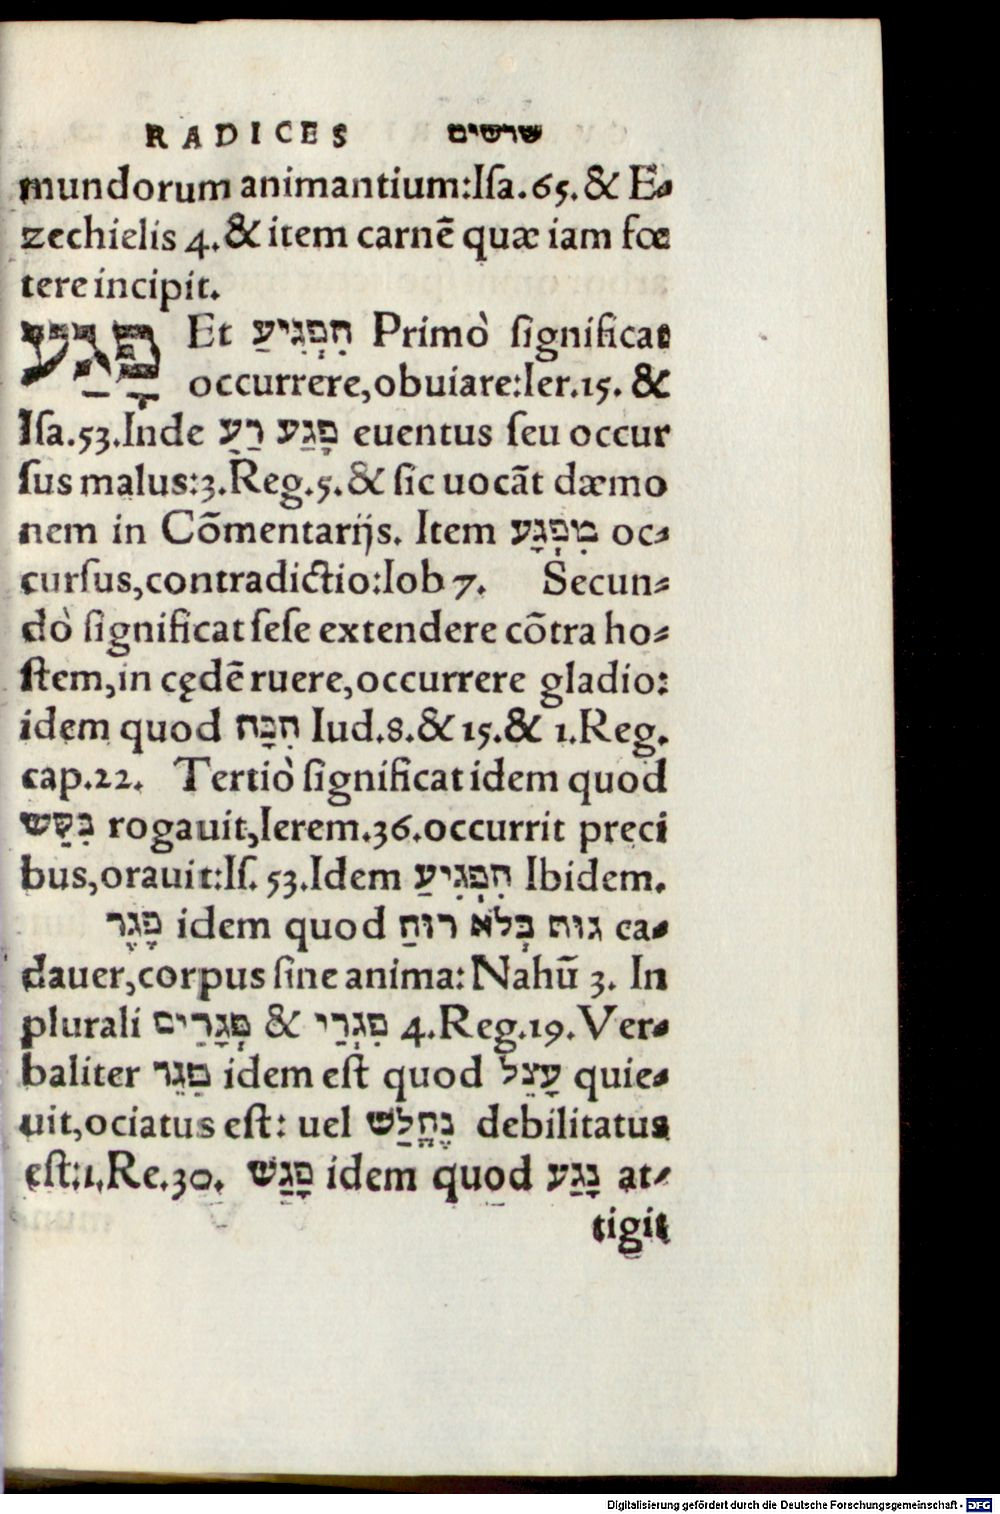 RADICES שרשים
mundorum animantium:Iſa.65.& E⸗
zechielis 4.& item carnẽ quæ iam fœ
tere incipit.
פָּגַע Et הִפְגִּיעַ Primò ſignificat
occurrere,obuiare:Ier.15. &
Iſa.53.Inde פֶּגַע רַע euentus ſeu occur
ſus malus:3.Reg.5.& ſic uocãt dæmo
nem in Cõmentarijs. Item מִפְגָּע oc⸗
curſus,contradictio:Iob 7. Secun⸗
dò ſignificat ſeſe extendere cõtra ho⸗
ſtem,in cędẽ ruere,occurrere gladio:
idem quod הִכָּה Iud.8.& 15.& 1.Reg.
cap.22. Tertiò ſignificat idem quod
בִּקֵּשׁ rogauit,Ierem.36.occurrit preci
bus,orauit:Iſ. 53.Idem הִפְגִּיעַ Ibidem.
פֶּגֶר idem quod גוּף בְּלֹא רוּחַ ca⸗
dauer,corpus ſine anima: Nahũ 3. In
plurali פְּגָרִים & פִּגְרֵי 4.Reg.19.Ver⸗
baliter פִּגֵּר idem eſt quod עָצֵל quie⸗
uit,ociatus eſt: uel נֶחֱלַשׁ debilitatus
eſt:1.Re.30. פָּגַשׁ idem quod נָגַע at⸗
tigit
Digitalisierung gefördert durch die Deutsche Forschungsgemeinschaft - DFG